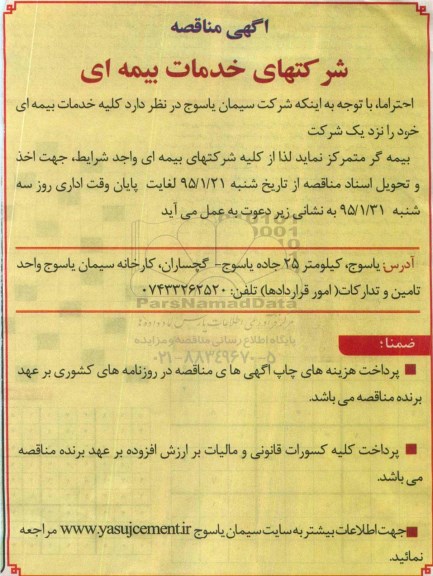 آگهی مناقصه
شرکتهای خدمات بیمه ای
احتراما، با توجه به اینکه شرکت سیمان یاسوج در نظر دارد کلیه خدمات بیمه ای
خود را نزد یک شرکت
بیمه گر متمرکز نماید لذا از کلیه شرکتهای بیمه ای واجد شرایط، جهت اخذ
و تحویل اسناد مناقصه از تاریخ شنبه ۹۵/۱/۲۱ لغایت پایان وقت اداری روز سه
شنبه ۹۵/۱/۳۱ به نشانی زیر دعوت به عمل می آید
آدرس: یاسوج، کیلومتر ۲۵ جاده یاسوج- گچساران، کارخانه سیمان یاسوج واحد
تامین و تدارکات( امور قراردادها) تلفن: ۰۷۴۳۳۲۶۲۵۲۰
ParsNamadData
پایگاه اطلاع رسانی مناقصه و مزایده
ضمنا:
۰۲۱-۸۸۳۴۹۶۷۰-۵
پرداخت هزینه های چاپ آگهی ها ی مناقصه در روزنامه های کشوری بر عهد
برنده مناقصه می باشد.
پرداخت کلیه کسورات قانونی و مالیات بر ارزش افزوده بر عهد برنده مناقصه
می باشد.
جهت اطلاعات بیشتر به سایت سیمان یاسوج www.yasujcement.ir مراجعه
نمائید.